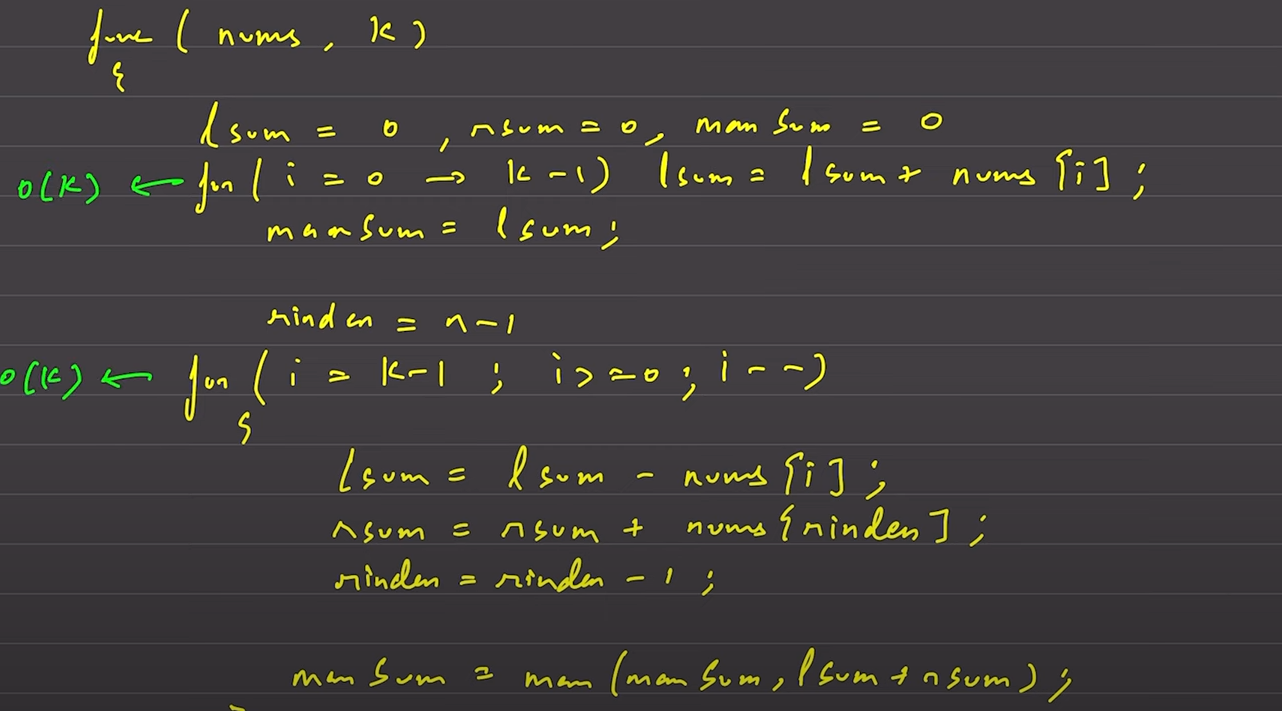 func ( nums , k )
{
lsum = 0 , rsum = 0, maxSum = 0
O(K) ← for ( i = 0 → k-1) lsum = lsum + nums [i] ;
maxSum = lsum ;
rindex = n-1
O(K) ← for ( i = k-1 ; i >= 0 ; i -- )
{
lsum = lsum - nums [i] ;
rsum = rsum + nums [rindex] ;
rindex = rindex - 1 ;
maxSum = max (maxSum, lsum + rsum) ;